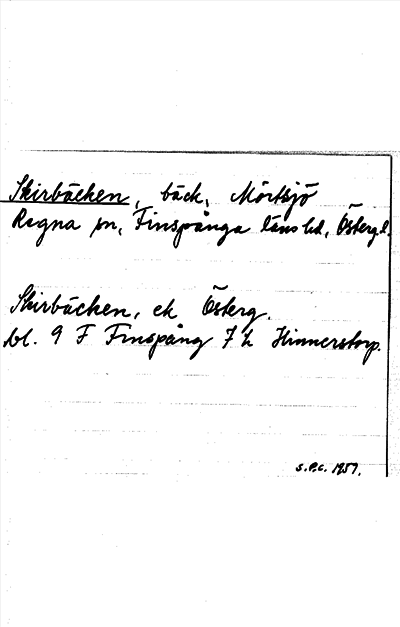 Skirbäcken, bäck, Mörtsjö
Regna sn, Finspånga läns hd, Östergl.
Skirbäcken, ek Österg.
bl. 9 F Finspång 7 h Hinnerstorp.
S.P.C. 1957.